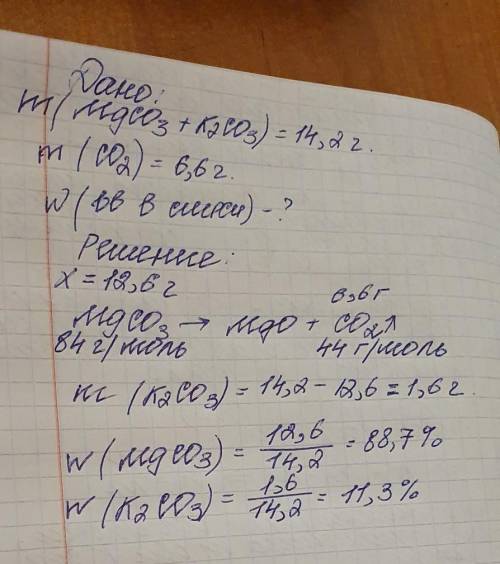 Дано:
m(MgCO₃ + K₂CO₃) = 14,2 г.
m(CO₂) = 6,6 г.
W(вв в смеси) - ?
Решение:
X = 12,6 г
6,6 г
MgCO₃ → MgO + CO₂↑
84 г/моль 44 г/моль
m(K₂CO₃) = 14,2 - 12,6 = 1,6 г.
W(MgCO₃) = 12,6/14,2 = 88,7%
W(K₂CO₃) = 1,6/14,2 = 11,3%